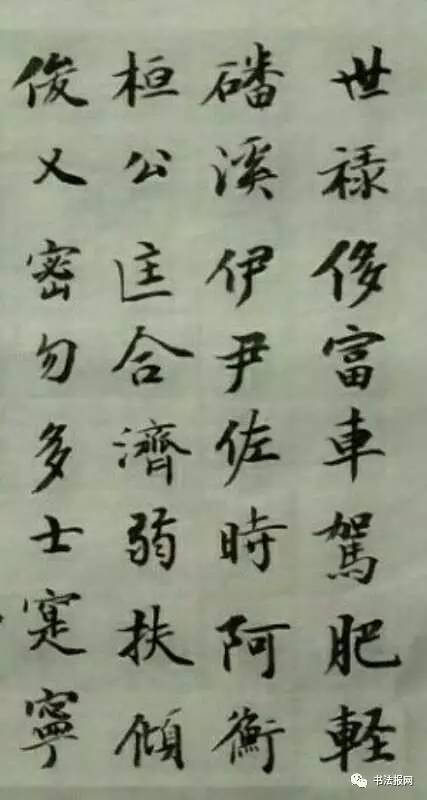 世禄侈富車駕肥軽
磻溪伊尹佐時阿衡
桓公匡合濟弱扶傾
俊乂密勿多士寔寧
书法报网